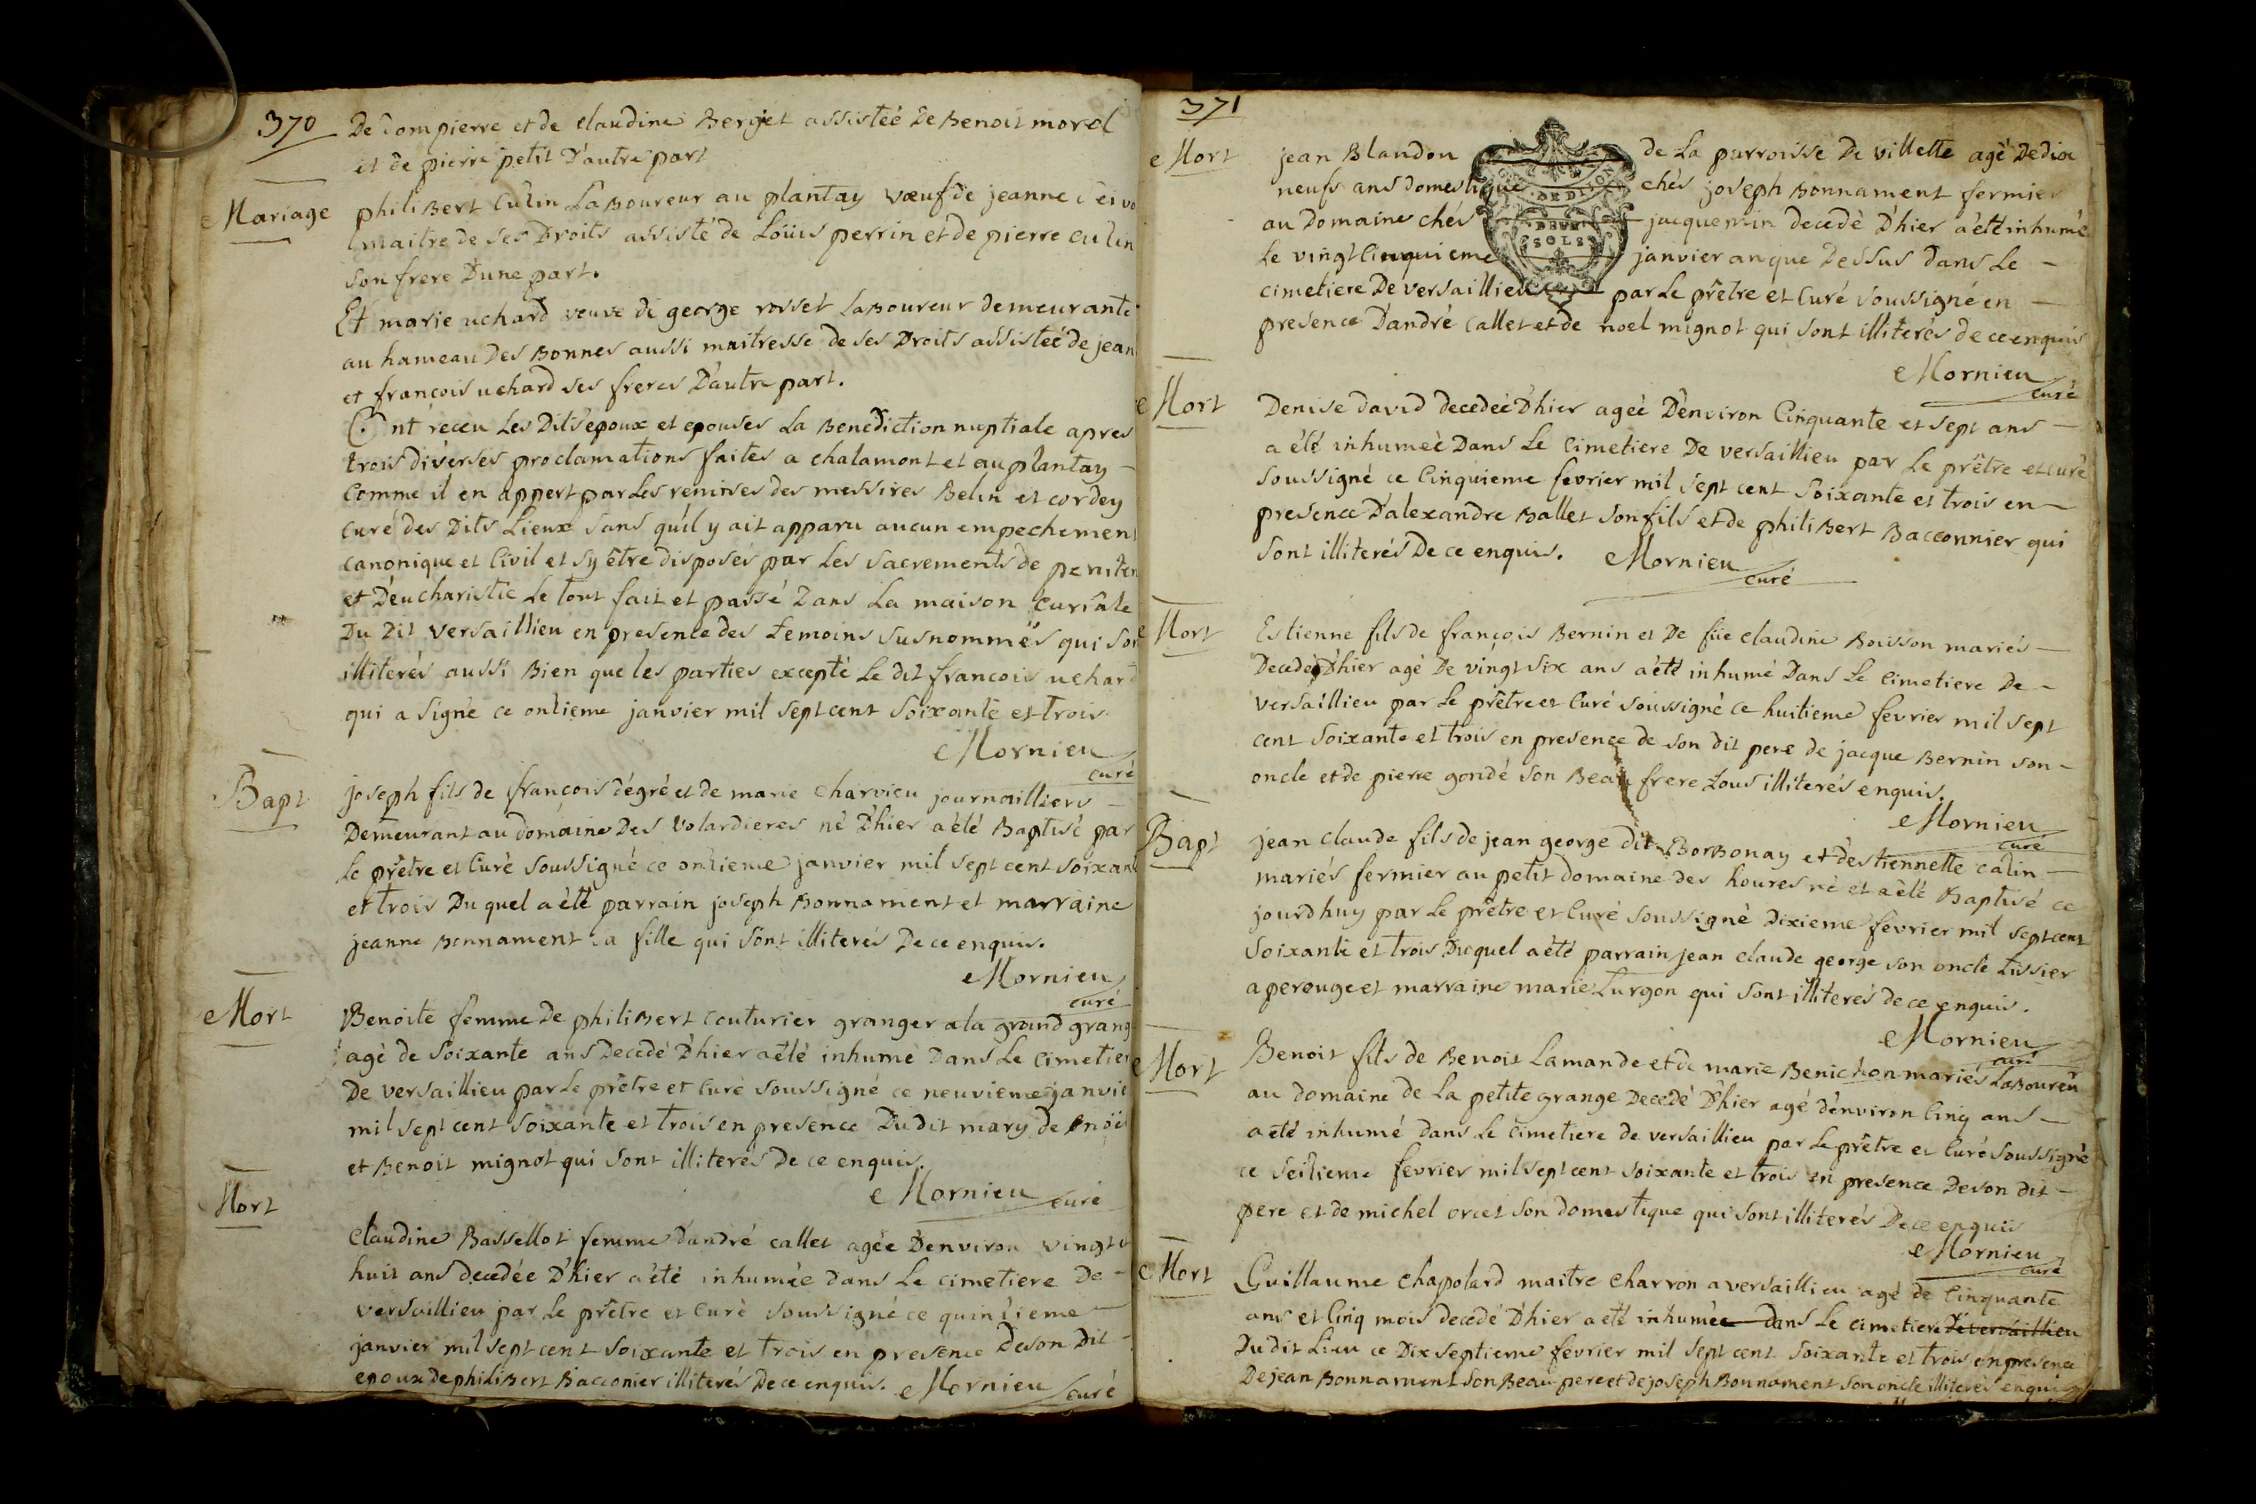 370
De Dompierre et de claudine Berget assistée De Benoit morel
et de pierre petit D'autre part
Mariage
philiBert Culin LaBoureur au plantay vœuf de jeanne
maitre de ses Droits assisté de Loüis perrin et de pierre culin
son frere D'une part.
Et marie uchard veuve de george rosset LaBoureur demeurante
au hameau Des Bonnes aussi maitresse de ses Droits assistée de jean
et françois uchard ses freres D'autre part.
Ont receu Les Dits epoux et epouses La Benediction nuptiale apres
trois diverses proclamations faites a chalamont et au plantay
Comme il en appert par Les remises des messires Belin et cordey
curé des Dits Lieux sans qu'il y ait apparu aucun empechement
canonique et Civil et s'y être disposés par Les sacrements de peniten
et D'eucharistie Le tout fait et passé Dans La maison Curiâle
Du Dit versaillieu en presence des temoins susnommés qui son
illiterés aussi Bien que les parties excepté Le dit francois uchard
qui a signé ce onzieme janvier mil sept cent soixante et trois
Mornieu
curé
Bapt
joseph fils de françois dégré et de marie charvieu journailliers
Demeurant au domaine Des volardieres né D'hier a été Baptisé par
Le prêtre et Curé soussigné ce onzieme janvier mil sept cent soixan
et trois Du quel a été parrain joseph Bonnament et marraine
jeanne Bonnament sa fille qui sont illiterés De ce enquis.
Mornieu
curé
Mort
Benoite femme De philiBert couturier granger a la grand grang
agé de soixante ans Decedé D'hier a été inhumé Dans Le cimetier
De versaillieu par Le prêtre et Curé soussigné ce neuvieme janvie
mil sept cent soixante et trois en presence Du dit mary de noël
et Benoit mignot qui sont illiterés De ce enquis.
Mornieu curé
Mort
Claudine Bassellot femme D'andré callet agée D'environ vingt et
huit ans decedée D'hier a été inhumée Dans Le cimetiere De
versaillieu par Le prêtre et Curé soussigné ce quinzieme
janvier mil sept cent soixante et trois en presence De son Dit
epoux De philiBert Bacconier illiterés De ce enquis. Mornieu curé
371
Mort
jean Blandon de La parroisse De villette agé De dix
neufs ans domestique chés joseph Bonnament fermier
au Domaine chés jacquemin decedé D'hier a été inhumé
Le vingt Cinquieme janvier an que Dessus dans Le
cimetiere De versaillieu par Le prêtre et Curé soussigné en
presence D'andré callet et de noel mignot qui sont illiterés de ce enquis
DE DIJON
DEUX
SOLS
Mornieu
curé
Mort
Denise david decedée D'hier agée D'environ Cinquante et sept ans
a été inhumée Dans Le Cimetiere De versaillieu par Le prêtre et curé
soussigné ce Cinquieme fevrier mil sept cent soixante et trois en
presence D'alexandre Ballet son fils et de philiBert Bacconnier qui
sont illiterés De ce enquis. Mornieu curé
Mort
Estienne fils de françois Bernin et De füe claudine Boisson mariés
Decedé D'hier agé De vingt six ans a été inhumé Dans Le Cimetiere De
versaillieu par Le prêtre et Curé soussigné Ce huitieme fevrier mil sept
cent soixante et trois en presence de son dit pere de jacque Bernin son
oncle et de pierre gondé son Beau frere tous illiterés enquis.
Mornieu
curé
Bapt
jean Claude fils de jean george dit BorBonay et d'estiennette catin
mariés fermier au petit domaine des houres né et a été Baptisé ce
jourd'huy par Le prêtre et Curé soussigné Dixieme fevrier mil sept cent
soixante et trois Duquel a été parrain jean claude george son oncle tissier
a perouge et marraine marie turgon qui sont illiterés de ce enquis.
Mornieu
curé
Mort
Benoit fils de Benoit Lamande et de marie Benichon mariés LaBoureu
au domaine de La petite grange Decedé D'hier agé d'environ Cinq ans
a été inhumé dans Le Cimetiere de versaillieu par Le prêtre et Curé soussigné
ce seizieme fevrier mil sept cent soixante et trois en presence De son dit
pere et de michel orcet son domestique qui sont illiterés De ce enquis
Mornieu
curé
Mort
Guillaume chapolard maitre charron a versaillieu agé de Cinquante
ans et Cinq mois decedé D'hier a été inhumée dans Le cimetiere De versaillieu
Du dit Lieu ce Dix septieme fevrier mil sept cent soixante et trois en presence
De jean Bonnament son Beau pere et de joseph Bonnament son oncle illiterés enquis